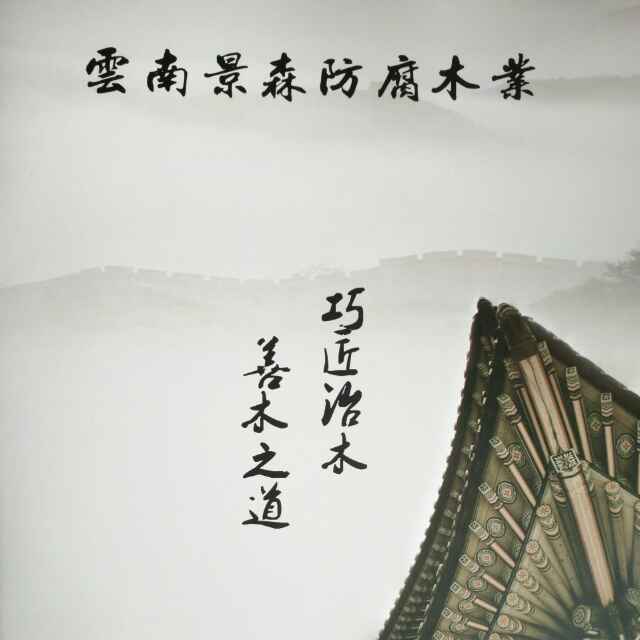 雲南景森防腐木業
巧匠治木
善木之道